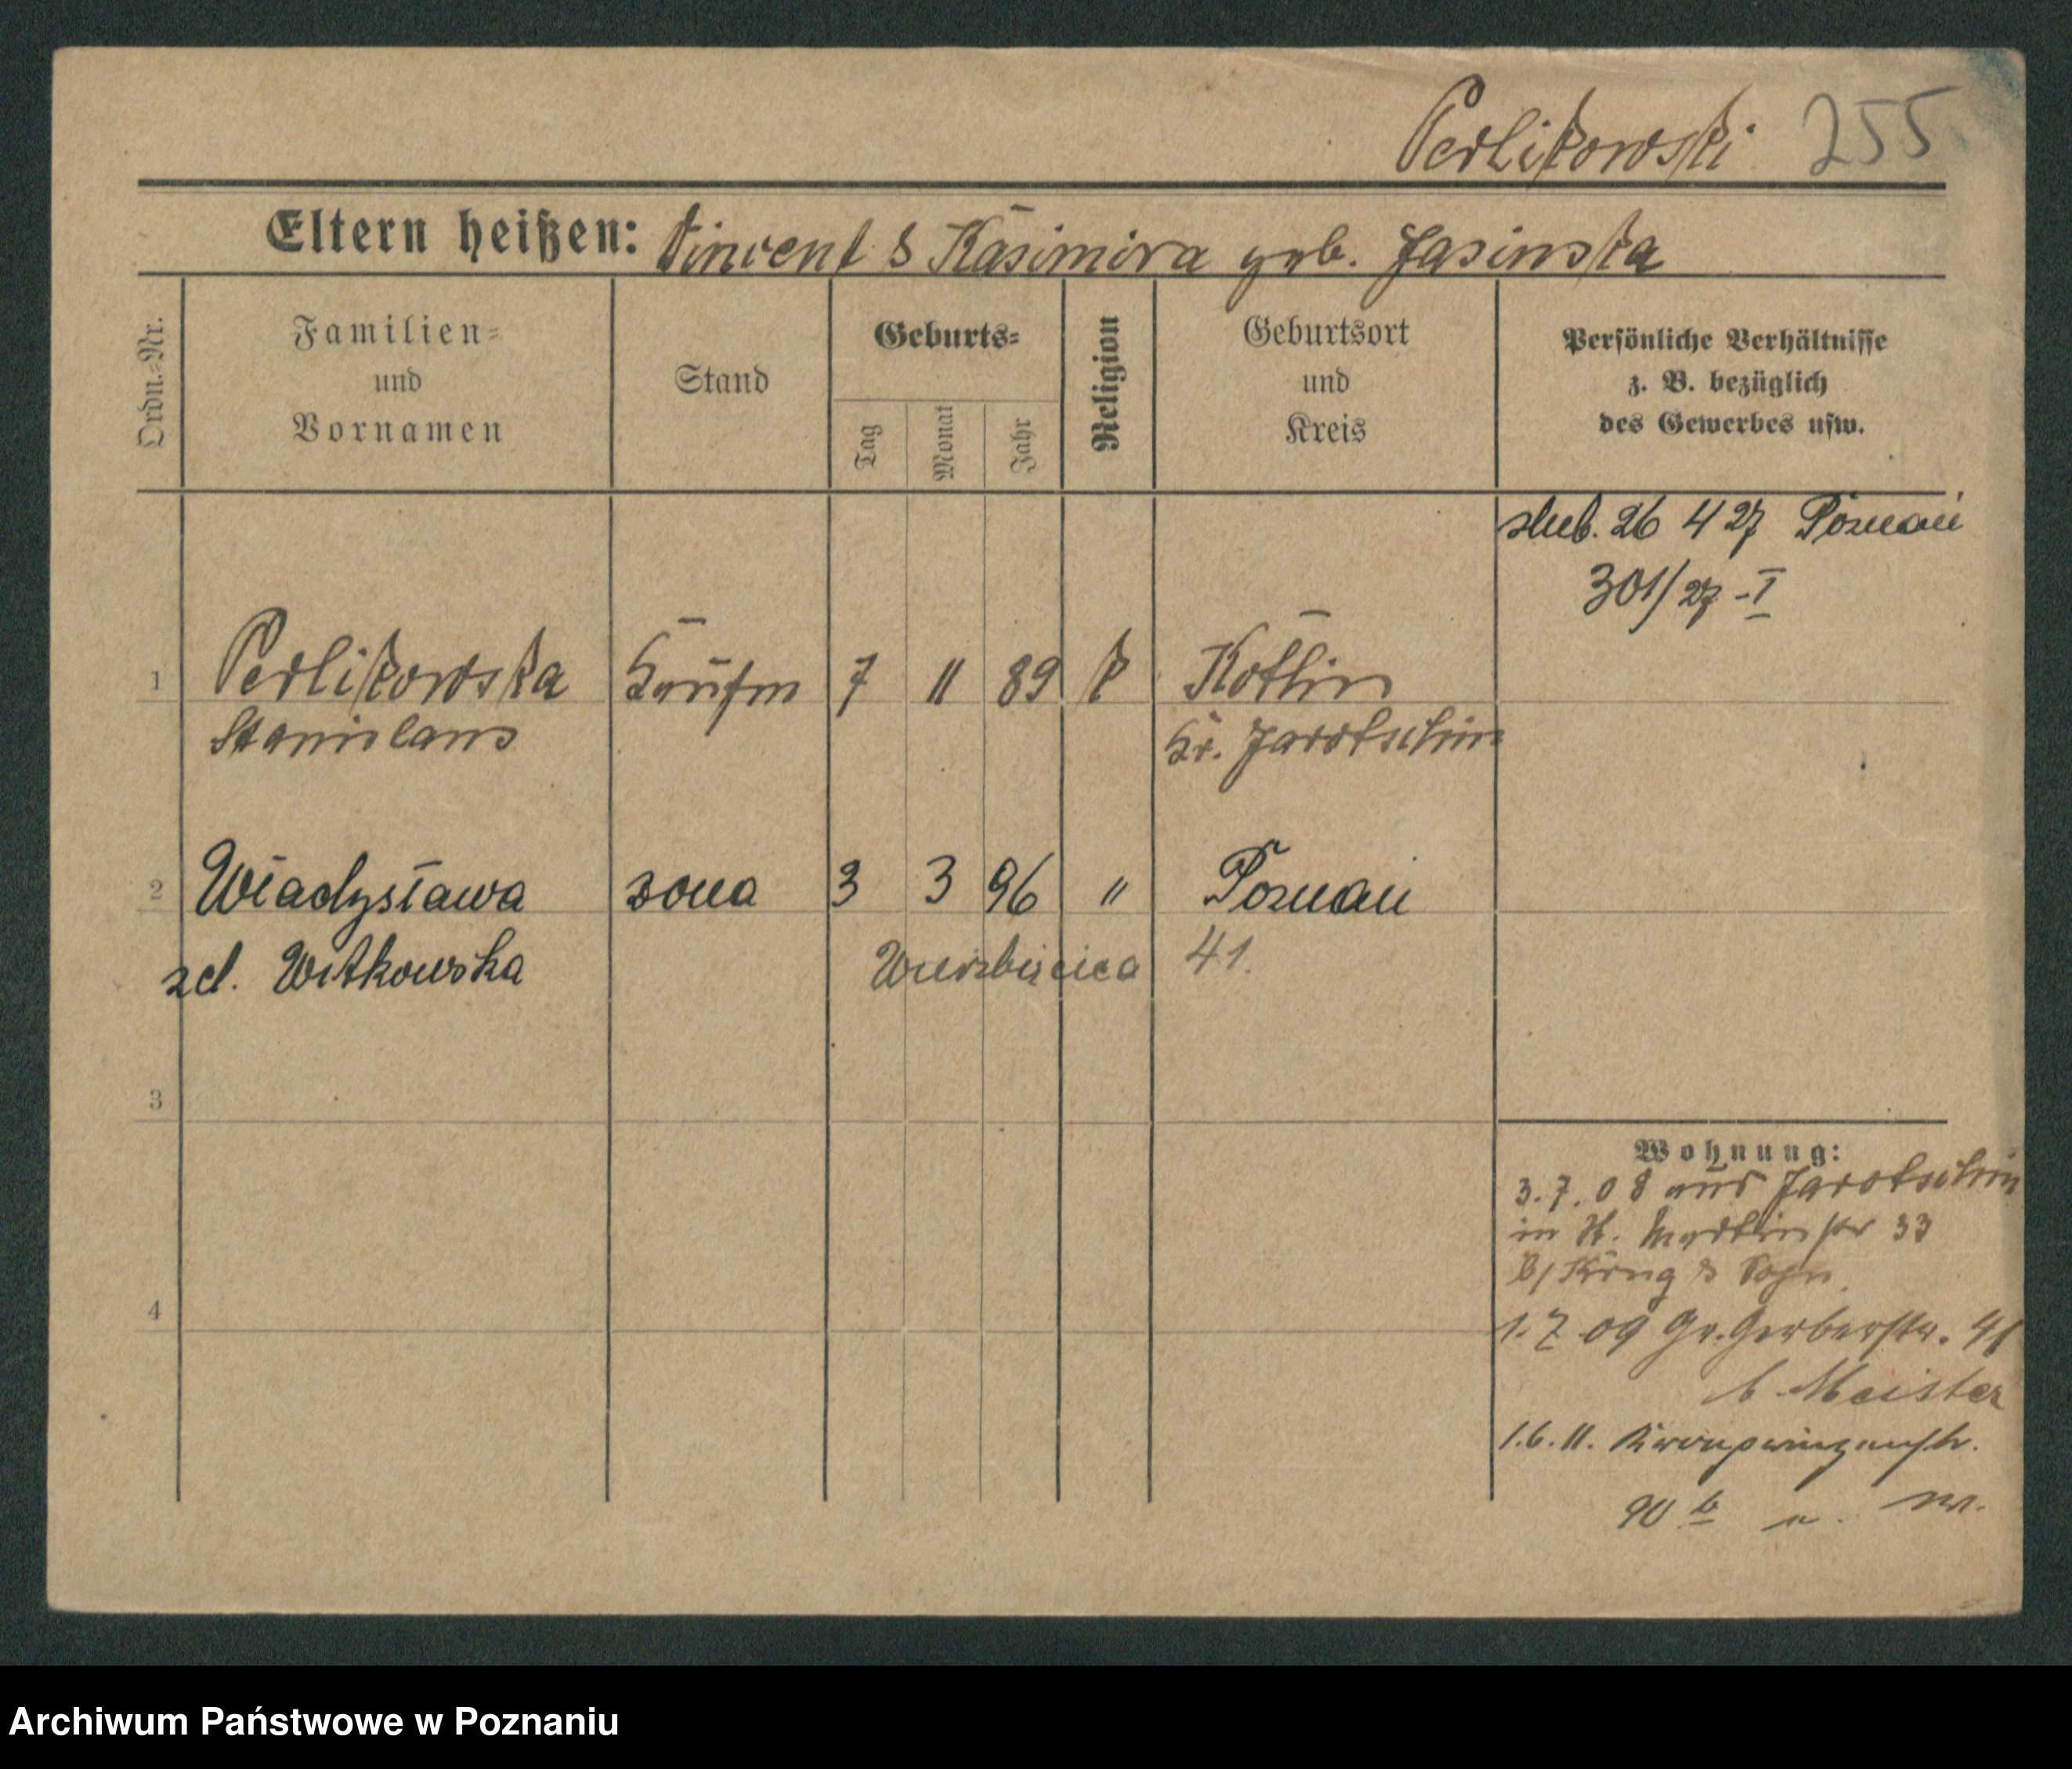 Perlikowski 255
Eltern heißen: Vincent & Kasimira geb. Jasinska
Ordn.=Nr.
Familien=
und
Vornamen
Stand
Geburts=
Tag
Monat
Jahr
Religion
Geburtsort
und
Kreis
Persönliche Verhältnisse
z. B. bezüglich
des Gewerbes usw.
slub. 26 4 27 Poznań
301/27 - I
1 Perlikowska Kaufm 7 11 89 k Kotlin
Stanislaus Kr. Jarotschin
2 Władysława żona 3 3 96 " Poznań
zd. Witkowska Wierzbięcica 41.
3
Wohnung:
3.7.08 aus Jarotschin
in St. Martinstr 33
b/ König &
4
1.7.09 Gr. Gerberstr. 41
b. Meister
1.6.11. Kronprinzenstr.
90 b
Archiwum Państwowe w Poznaniu